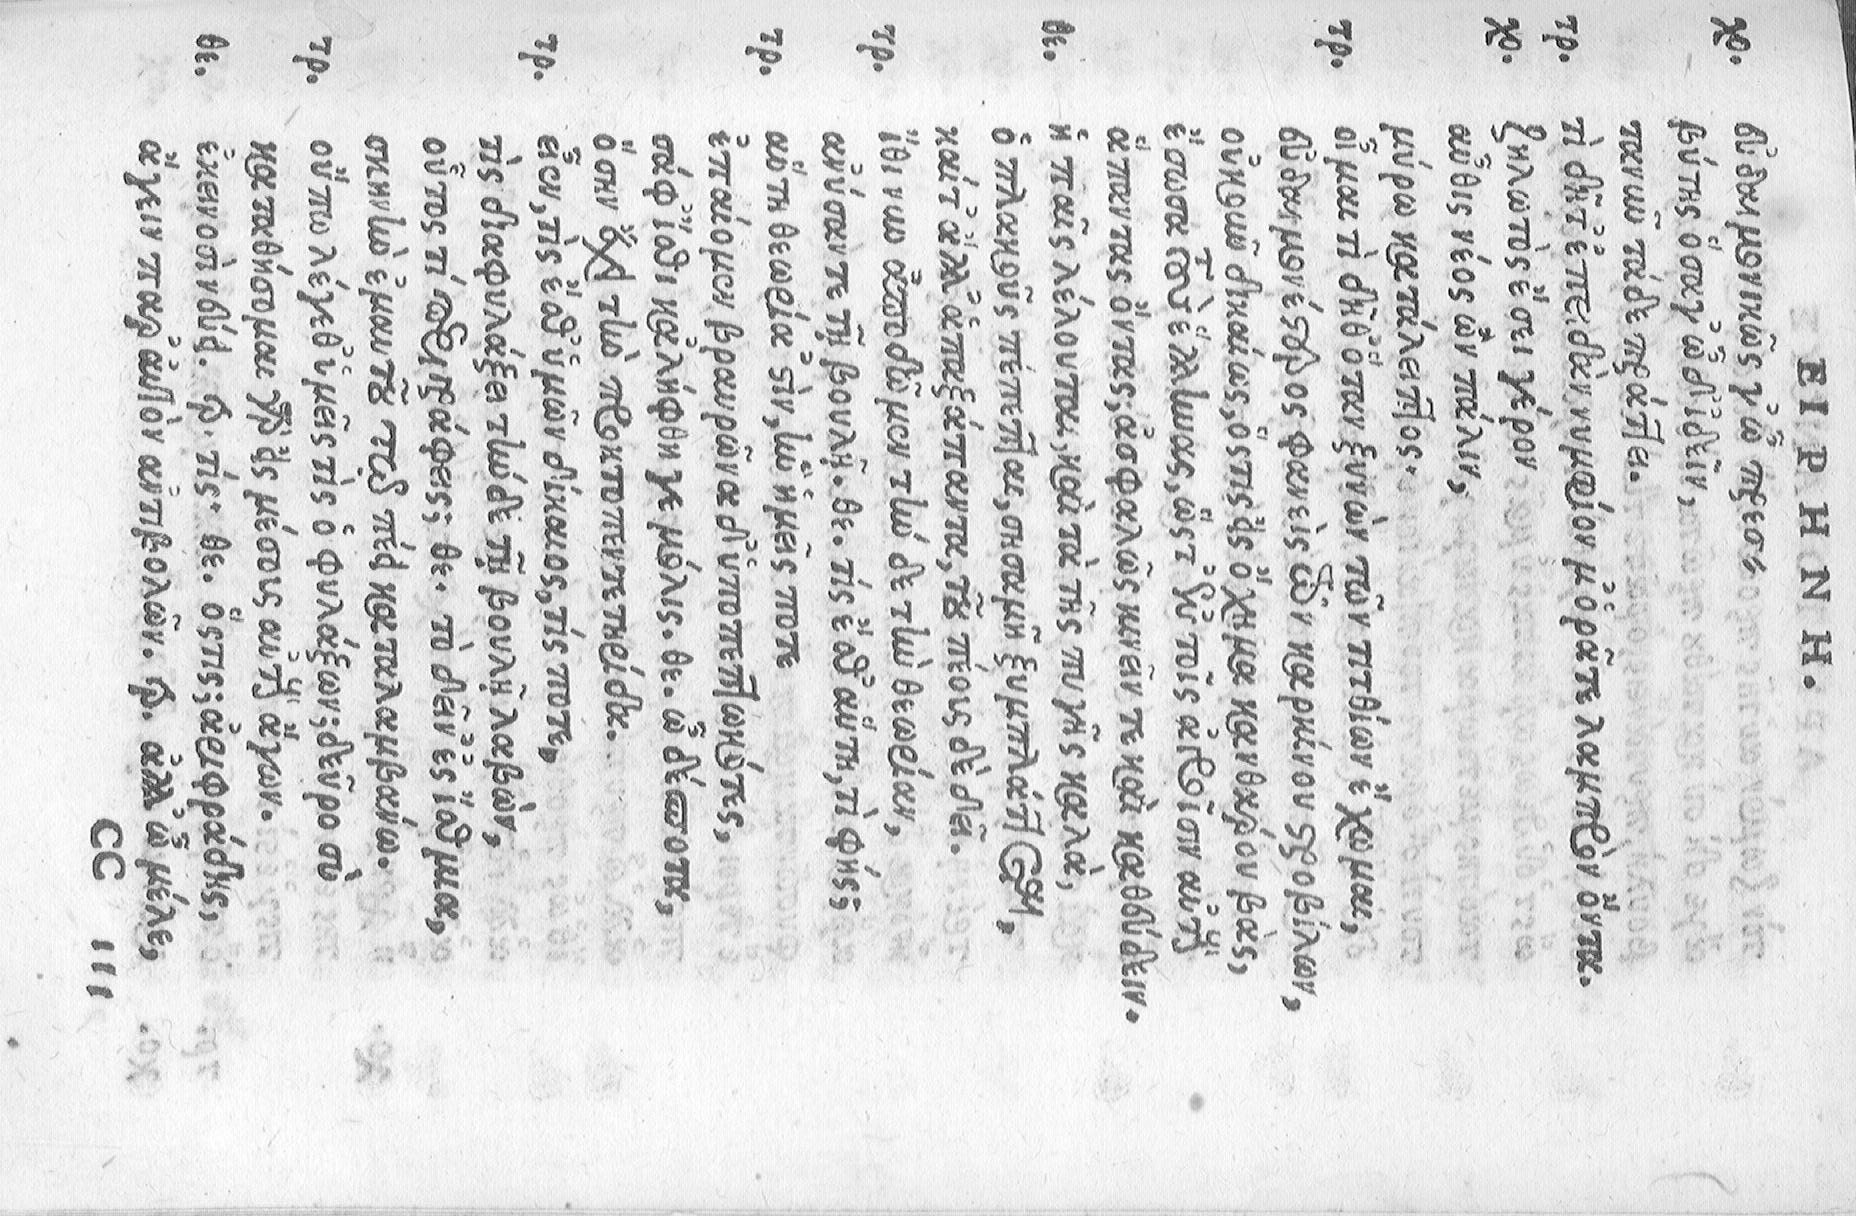 ΕΙΡΗΝΗ.
χο. εὐδαιμονικῶς γ' ὦ πρεσ-
βύτης ὅσα γ' ὧδ' ἰδεῖν,
τανῦν τάδε πράττει.
τρ. τί δῆτ' ἐπειδὰν νυμφίον μ' ὁρᾶτε λαμπρὸν ὄντα.
χο. ζηλωτὸς ἔσει γέρον
αὖθις νέος ὢν πάλιν,
μύρῳ κατάλειπτος.
τρ. οἶμαι τί δῆθ' ὅταν ξυνὼν τῶν τιτθίων ἔχωμαι,
εὐδαιμονέστερος φανεὶς τῶν καρκίνου στροβίλων,
οὐκοῦν δικαίως, ὅστις εἰς ὄχημα κανθάρου βὰς,
ἔσωσα τοὺς ἕλληνας, ὥστ' ἐν τοῖς ἀγροῖσιν αὐτοὺς
ἅπαντας ὄντας, ἀσφαλῶς κινεῖν τε καὶ καθεύδειν.
θε. ἡ παῖς λέλουται, καὶ τὰ τῆς πυγῆς καλὰ,
ὁ πλακοῦς πέπεπται, σησαμῆ ξυμπλάττεται,
καὶ τ' ἄλλ' ἁπαξάπαντα, τοῦ πέους δὲ δεῖ.
τρ. ἴθι νυν ἀποδῶμεν τὴν δὲ τὴν θεωρίαν,
ἀνύσαντε τῇ βουλῇ. θε. τίς ἐσθ' αὕτη, τί φής;
τρ. αὕτη θεωρία 'στὶν, ἣν ἡμεῖς ποτε
ἐπαίομεν βραυρῶνάδ' ὑποπεπωκότες,
σάφ' ἴσθι κἀλήφθη γε μόλις. θε. ὦ δέσποτα,
ὅσην ἔχει τὴν πρωκτοπεντετηρίδα.
τρ. εἶεν, τίς ἐσθ' ὑμῶν δίκαιος, τίς ποτε,
τίς διαφυλάξει τὴν δὲ τῇ βουλῇ λαβὼν,
οὗτος τί περιγράφεις; θε. τὸ δεῖν' εἰς ἴσθμια,
σκηνὴν ἐμαυτοῦ τῷ πέει καταλαμβάνω.
τρ. οὔπω λέγεθ' ὑμεῖς τίς ὁ φυλάξων; δεῦρο σὺ
καταθήσομαι γὰρ εἰς μέσους αὐτοὺς ἄγων.
θε. ἐκεινοσὶ νεύει. τρ. τίς. θε. ὅστις; ἀριφράδης,
ἄγειν παρ' αὑτὸν ἀντιβολῶν. τρ. ἀλλ' ὦ μέλε,
CC 111